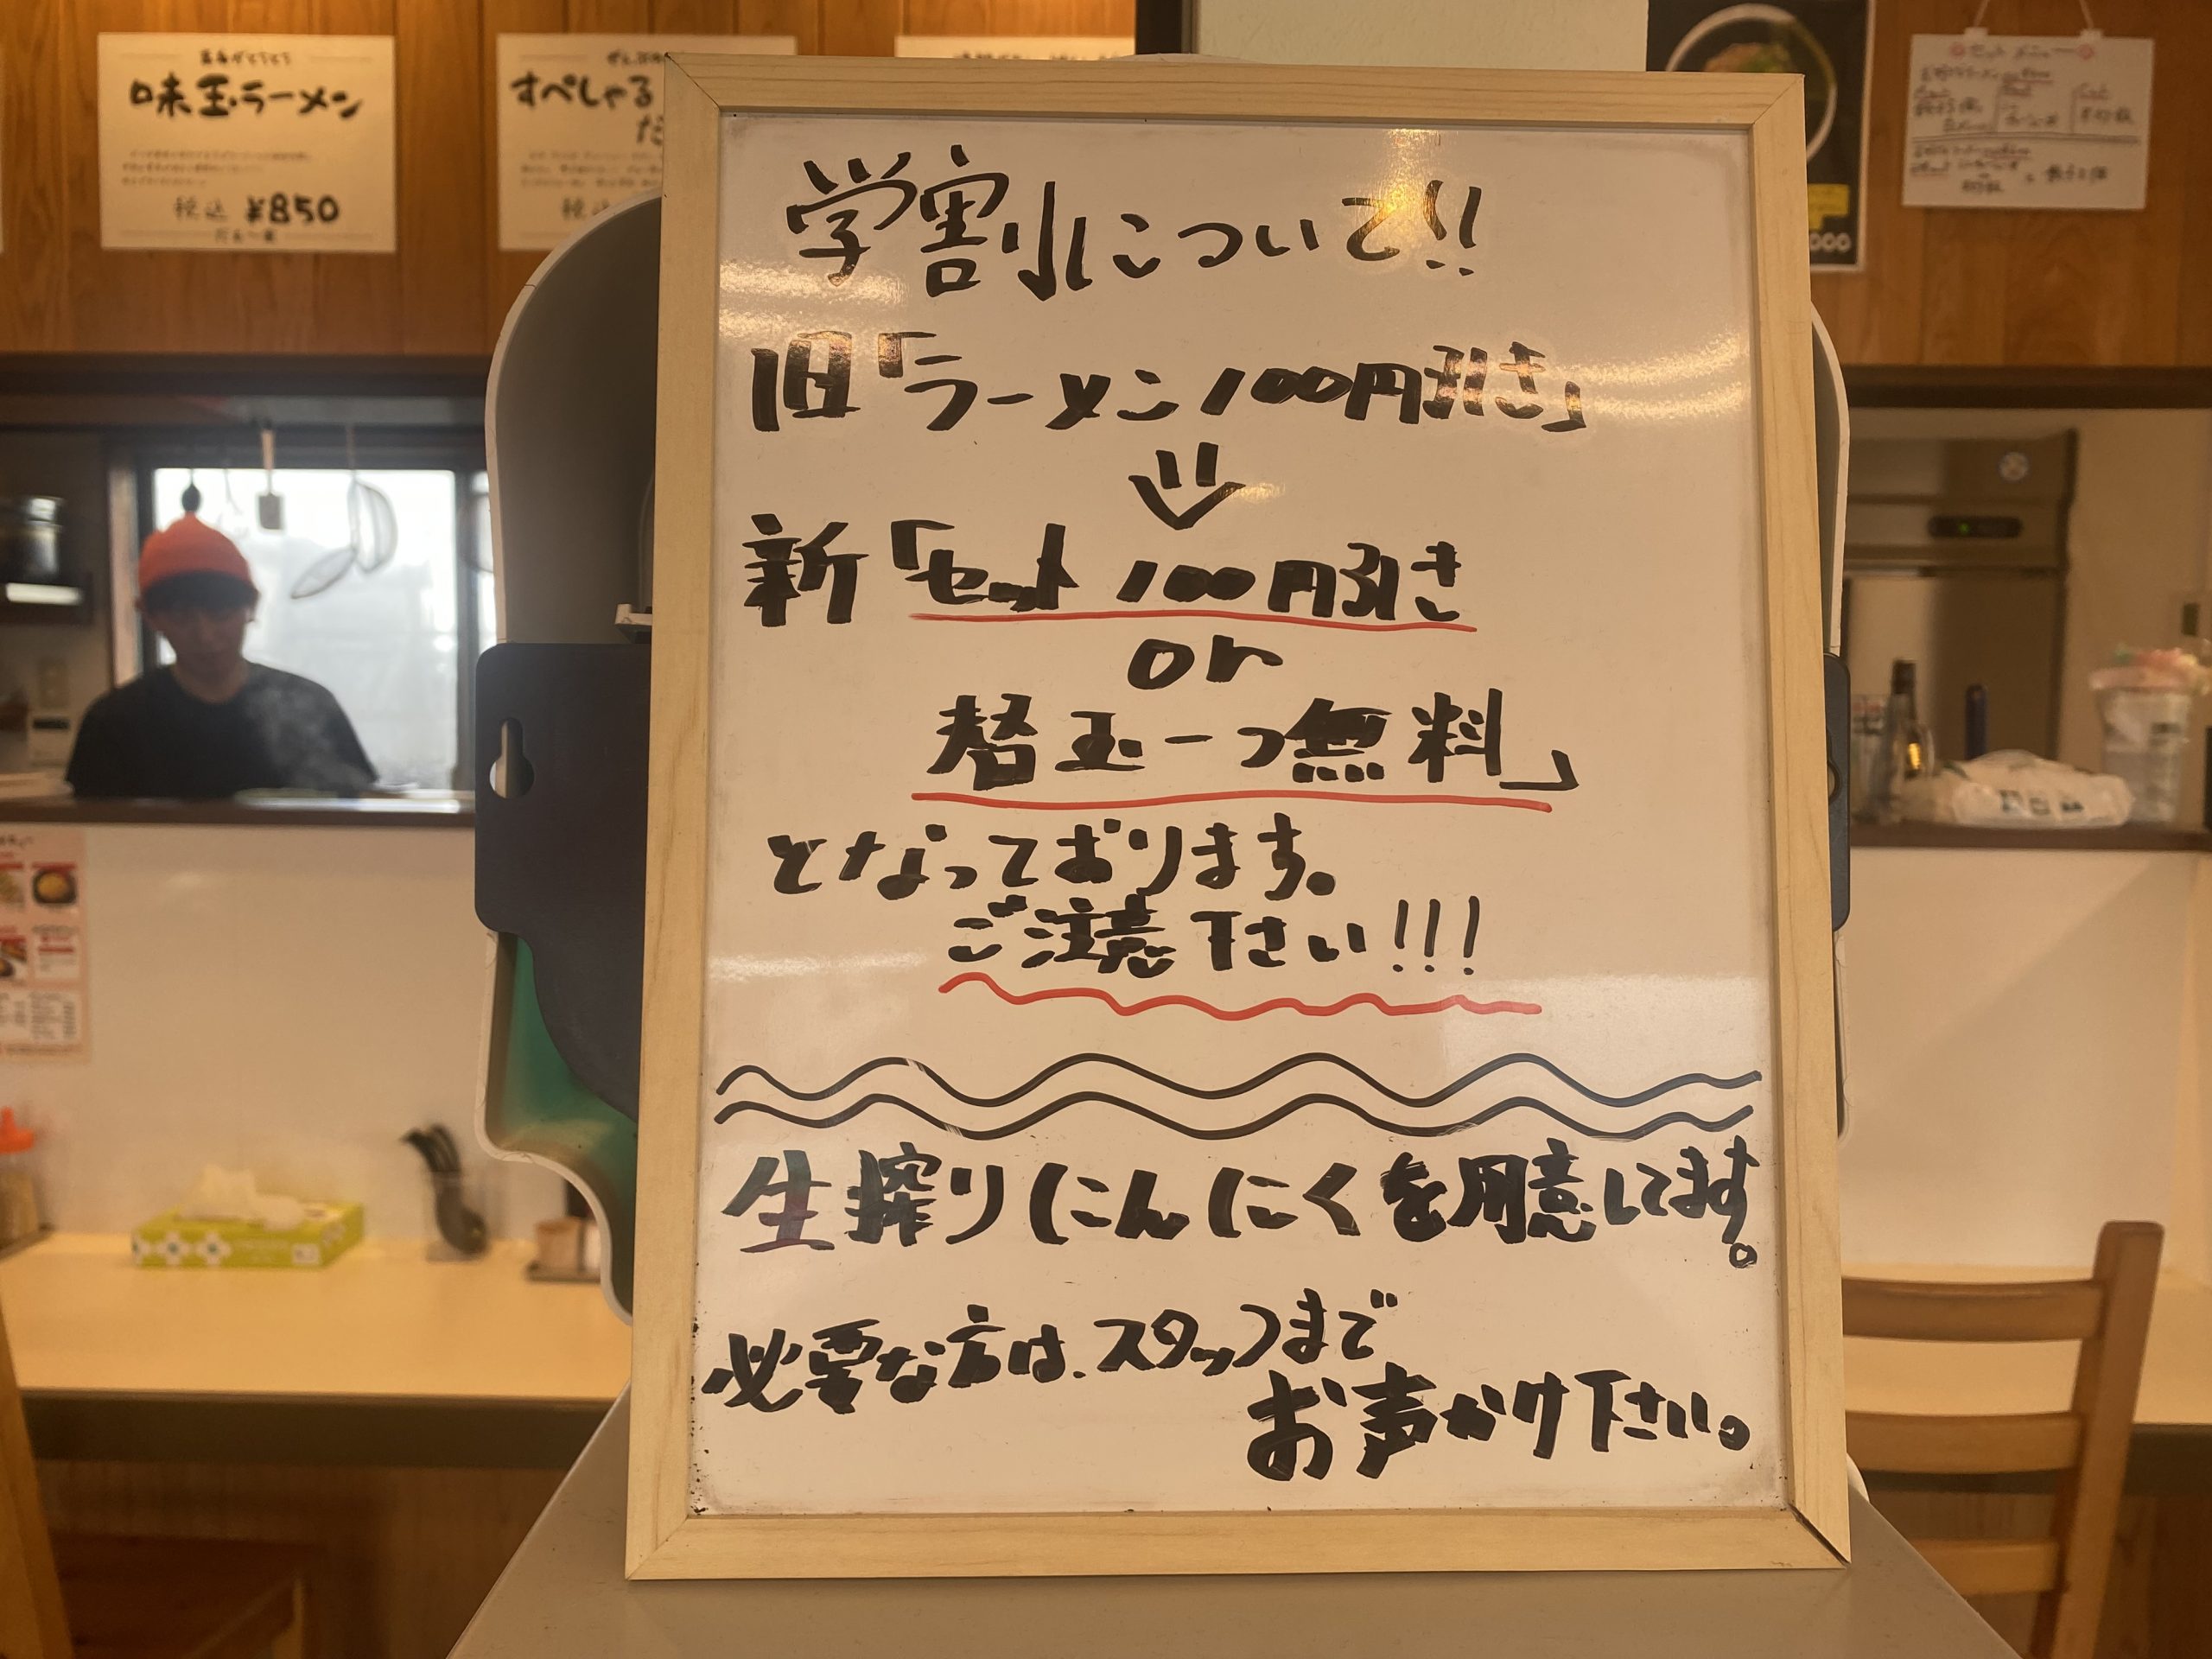 味玉ラーメン
税込 ¥850
すぺしゃる
学割について!!
旧「ラーメン100円引き」
新「セット100円引き
or
替玉一つ無料」
となっております。
ご注意下さい!!!
生搾りにんにくを用意してます。
必要な方は、スタッフまで
お声かけ下さい。